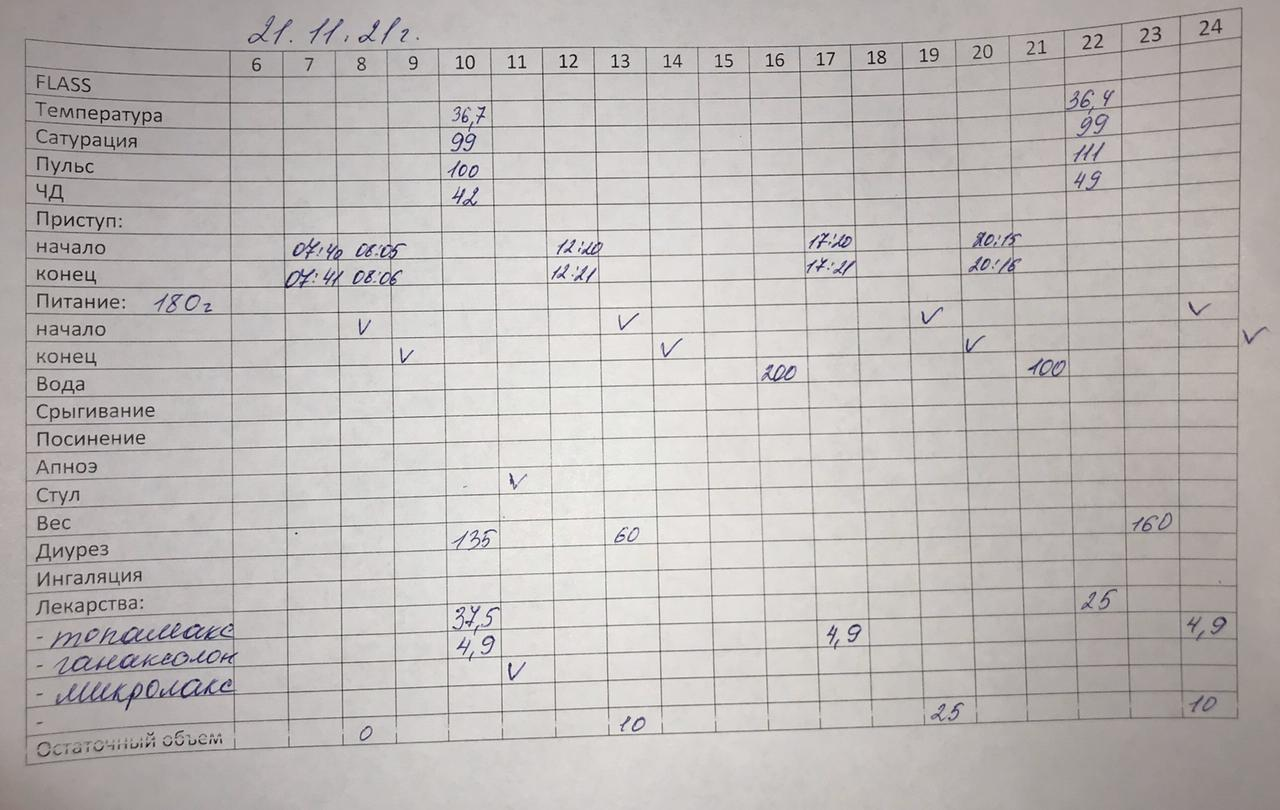 21.11.21г.
6 7 8 9 10 11 12 13 14 15 16 17 18 19 20 21 22 23 24
FLASS
Температура 36,7 36,4
Сатурация 99 99
Пульс 100 111
ЧД 42 49
Приступ:
начало 07:40 08:05 12:20 17:20 20:15
конец 07:41 08:06 12:21 17:21 20:16
Питание: 180г
начало V V V V
конец V V V V
Вода 200 100
Срыгивание
Посинение
Апноэ
Стул V
Вес
Диурез 135 60 160
Ингаляция
Лекарства:
- топамакс 37,5 25
- ганаксолон 4,9 4,9 4,9
- микролакс V
-
Остаточный объем 0 10 25 10